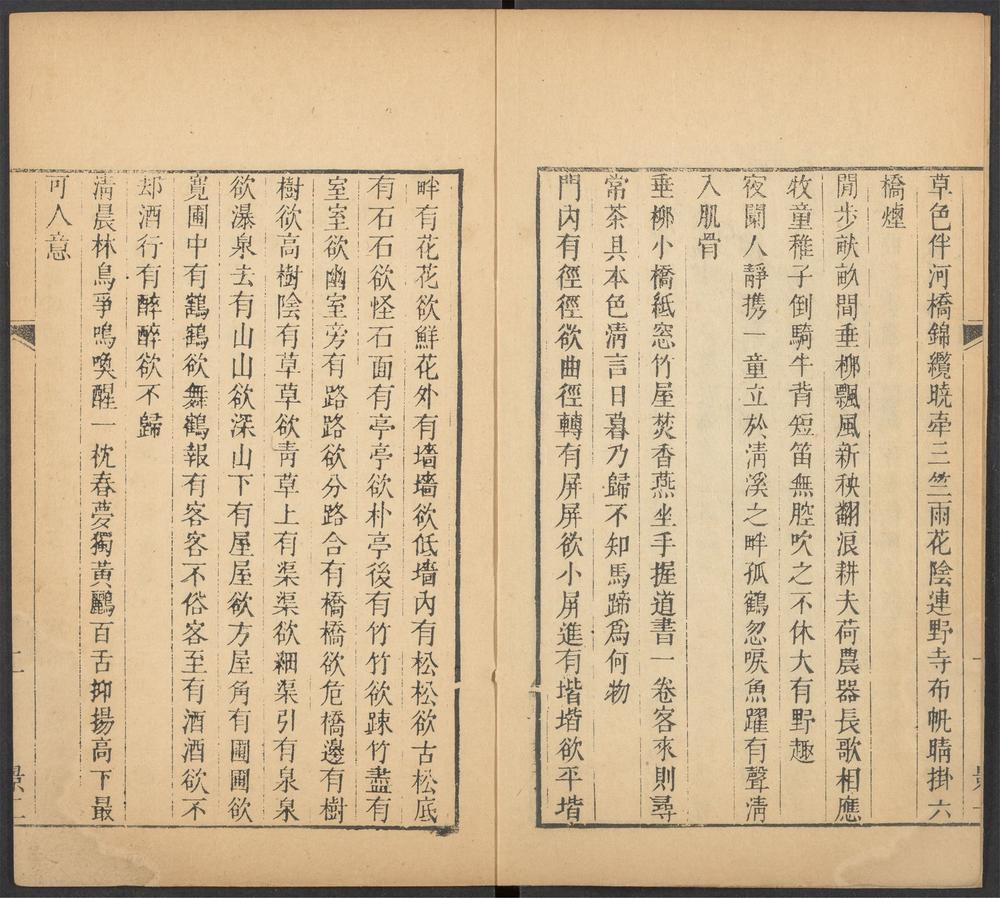 草色伴河橋錦纜曉牽三竺雨花陰連野寺布帆晴掛六
橋煙
閒步畎畝間垂柳飄風新秧翻浪耕夫荷農器長歌相應
牧童稚子倒騎牛背短笛無腔吹之不休大有野趣
夜闌人靜携一童立於清溪之畔孤鶴忽唳魚躍有聲清
入肌骨
垂柳小橋紙窓竹屋焚香燕坐手握道書一卷客來則尋
常茶具本色清言日暮乃歸不知馬蹄爲何物
門內有徑徑欲曲徑轉有屏屏欲小屏進有堦堦欲平堦
畔有花花欲鮮花外有墻墻欲低墻內有松松欲古松底
有石石欲怪石面有亭亭欲朴亭後有竹竹欲踈竹盡有
室室欲幽室旁有路路欲分路合有橋橋欲危橋邊有樹
樹欲高樹陰有草草欲靑草上有渠渠欲細渠引有泉泉
欲瀑泉去有山山欲深山下有屋屋欲方屋角有圃圃欲
寬圃中有鶴鶴欲舞鶴報有客客不俗客至有酒酒欲不
却酒行有醉醉欲不歸
清晨林鳥爭鳴喚醒一枕春夢獨黃鸝百舌抑揚高下最
可人意
二
景二